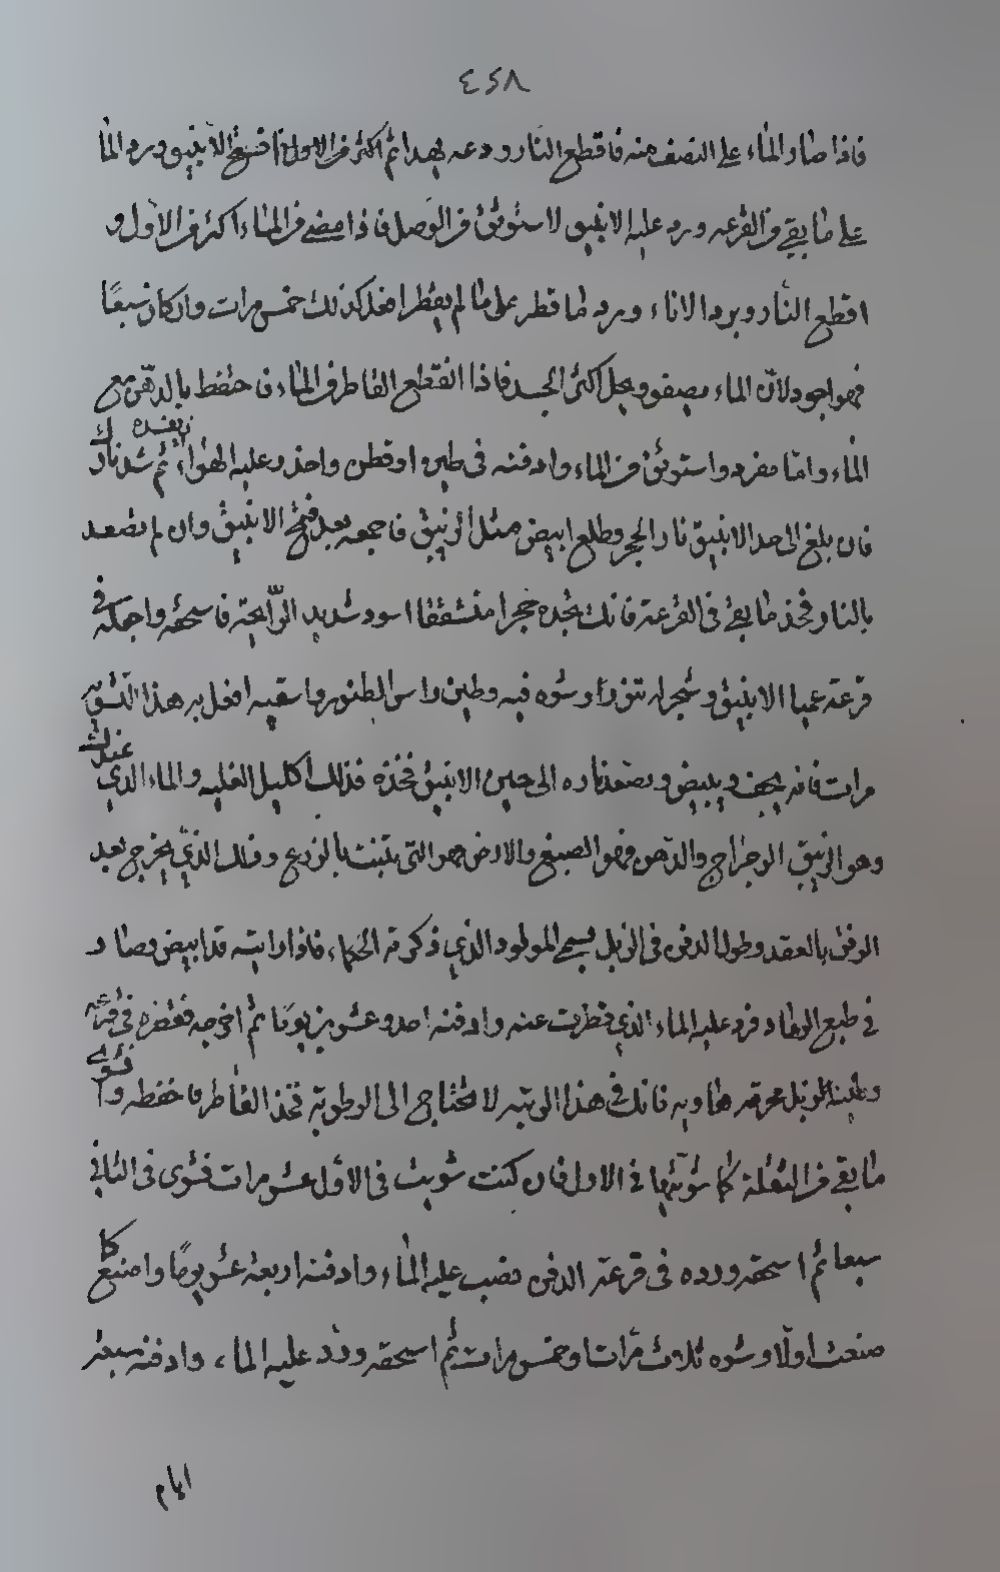 ٤٤٨
فاذا صار الماء على النصف منه فاقطع النار ودعه يهدا ثم اكثر من الاول افتح الانبيق ورد الما
على ما بقى فى القرعه ورد عليه الانبيق لاستوثق من الوصل فاذا مضى من الماء اكثر من الاول و
اقطع النار وبرد الاناء ورد ما قطر على ما لم يقطر افعل كذلك خمس مرات وان كان سبعًا
فهو اجود لان الماء يصفو ويحل اكثر الجسد فاذا انقطع القاطر من الماء فاحتفظ بالدهن مع
الماء واما مفرد واستوثق من الماء وادفنه فى طين او قطن واحذر عليه الهواء ثم شد نار
فان بلغ الى حد الانبيق نار الحجر وطلع ابيض مثل الزيبق فاجمعه بعد فتح الانبيق وان لم يصعد
بالنار فخذ ما بقى فى القرعة فانك تجده حجرا متشققا اسود شديد الرّايحة فاسحقه واجعله فى
قرعة عميا الانبيق و له تنورا وشوه فيه وطين راس واسقيه افعل به هذا
مرات فانه يجف ويبيض ويصعد ناره الى حين الانبيق فخذه فذلك اكليل الغلبه والماء الذي عندك
وهو الزيبق الرجراج والدهن فهو الصبغ والارض هو التى تنبت بالزرع وذلك الذي يخرج بعد
الرفق بالعقد وطول الدفن فى الزبل يسمى المولود الذي ذكرته الحكماء فاذا رايته قد ابيض وصار
فى طبع الرماد فرد عليه الماء الذي قطرت عنه وادفنه احد وعشرين يومًا ثم اخرجه فقطره فى قرعة
الزبل محرقه فانك فى هذا الوجه لا تحتاج الى الرطوبة فخذ القاطر فاحفظه و
ما بقى من الثفلة كما شويتها فى الاول فان كنت شويت فى الاول عشر مرات فشوى فى الثانى
سبعا ثم اسحقه ورده فى قرعة الدفن تصب عليه الماء وادفنه اربعة عشر يومًا واصنع كما
صنعت اولًا وشوه ثلاث مرات او خمس مرات ثم اسحقه ورد عليه الماء وادفنه سبعة
ايام